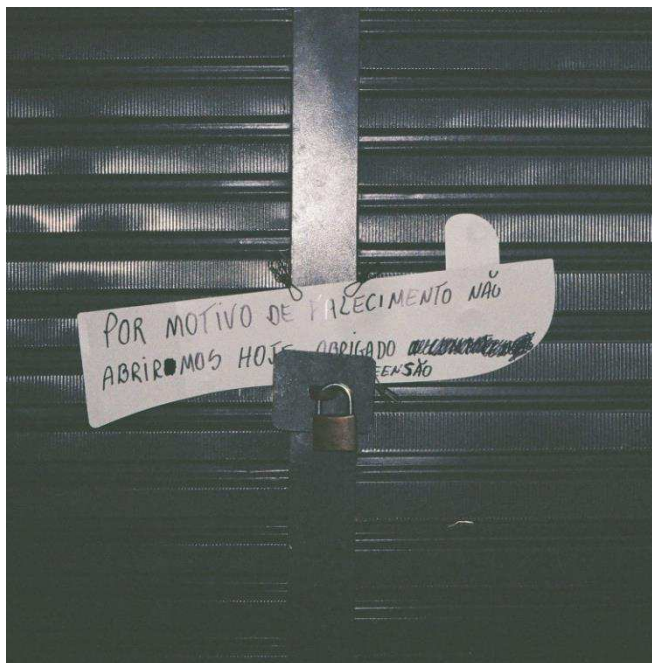 POR MOTIVO DE FALECIMENTO NÃO
ABRIROMOS HOJE OBRIGADO
EENSÃO